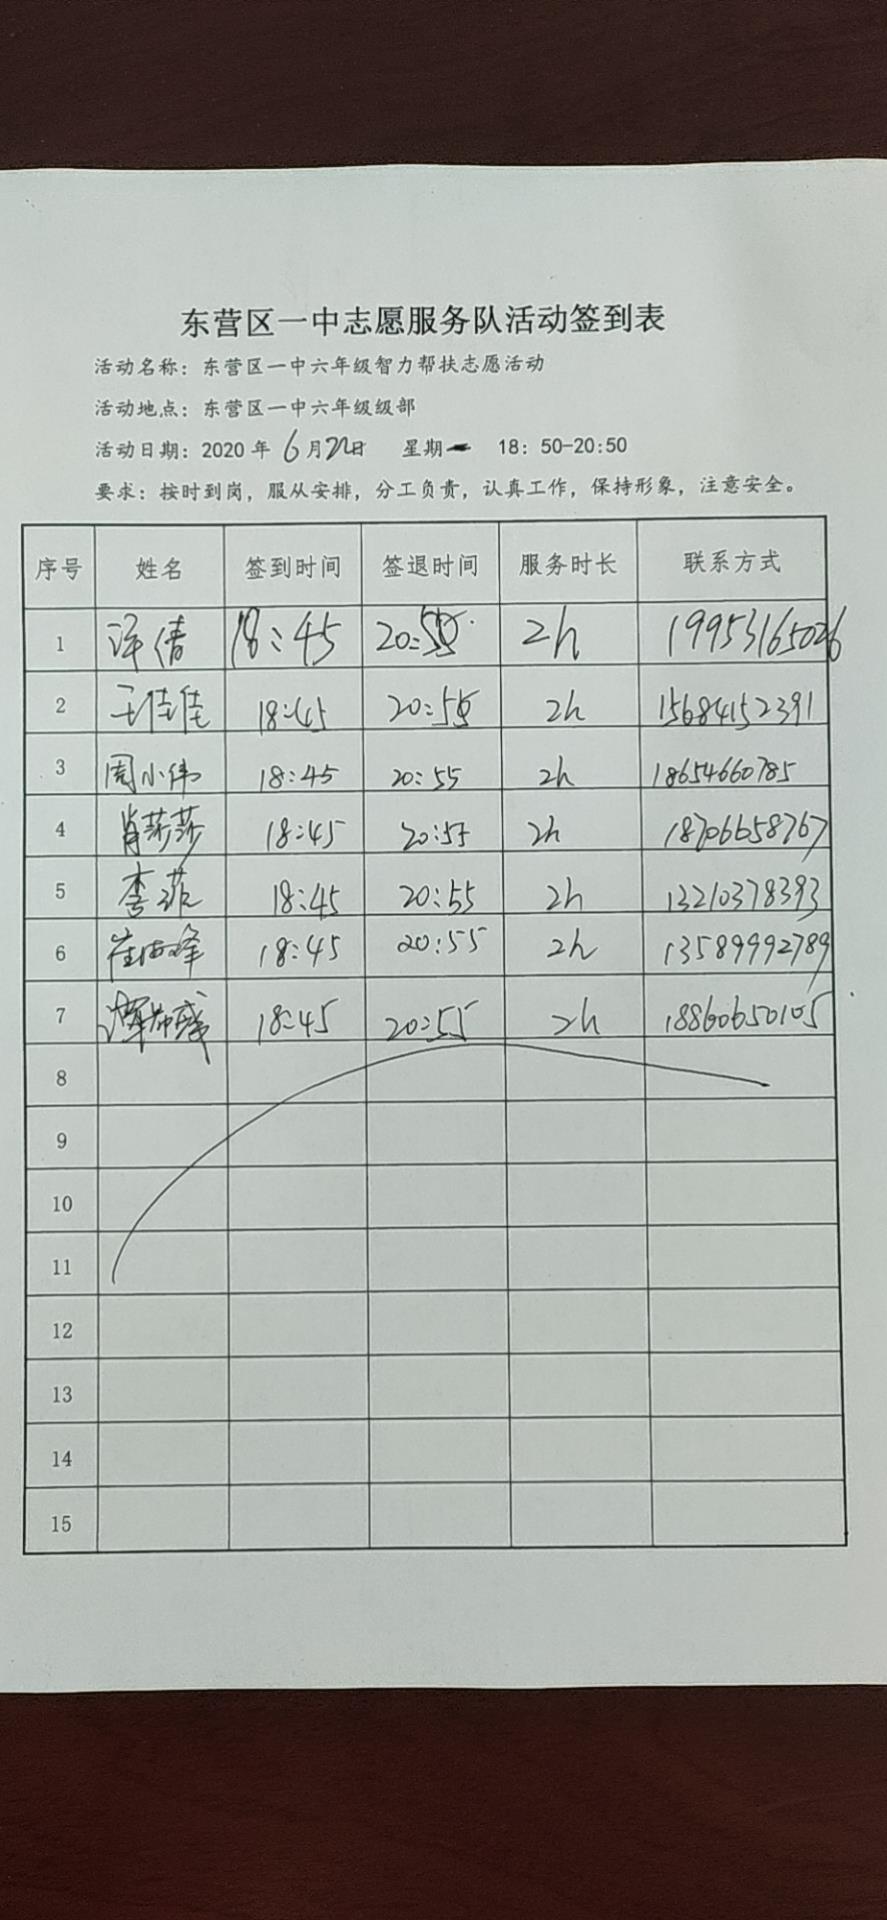 东营区一中志愿服务队活动签到表
活动名称：东营区一中六年级智力帮扶志愿活动
活动地点：东营区一中六年级级部
活动日期：2020 年 6月22日 星期一 18：50-20:50
要求：按时到岗，服从安排，分工负责，认真工作，保持形象，注意安全。
序号 姓名 签到时间 签退时间 服务时长 联系方式
1 倩 18:45 20:55 2h 19953165026
2 王佳佳 18:45 20:55 2h 15684152391
3 周小伟 18:45 20:55 2h 18654660785
4 肖莎莎 18:45 20:55 2h 18706658767
5 李菲 18:45 20:55 2h 13210378393
6 崔海峰 18:45 20:55 2h 13589992789
7 谭 18:45 20:55 2h 18860650105
8
9
10
11
12
13
14
15